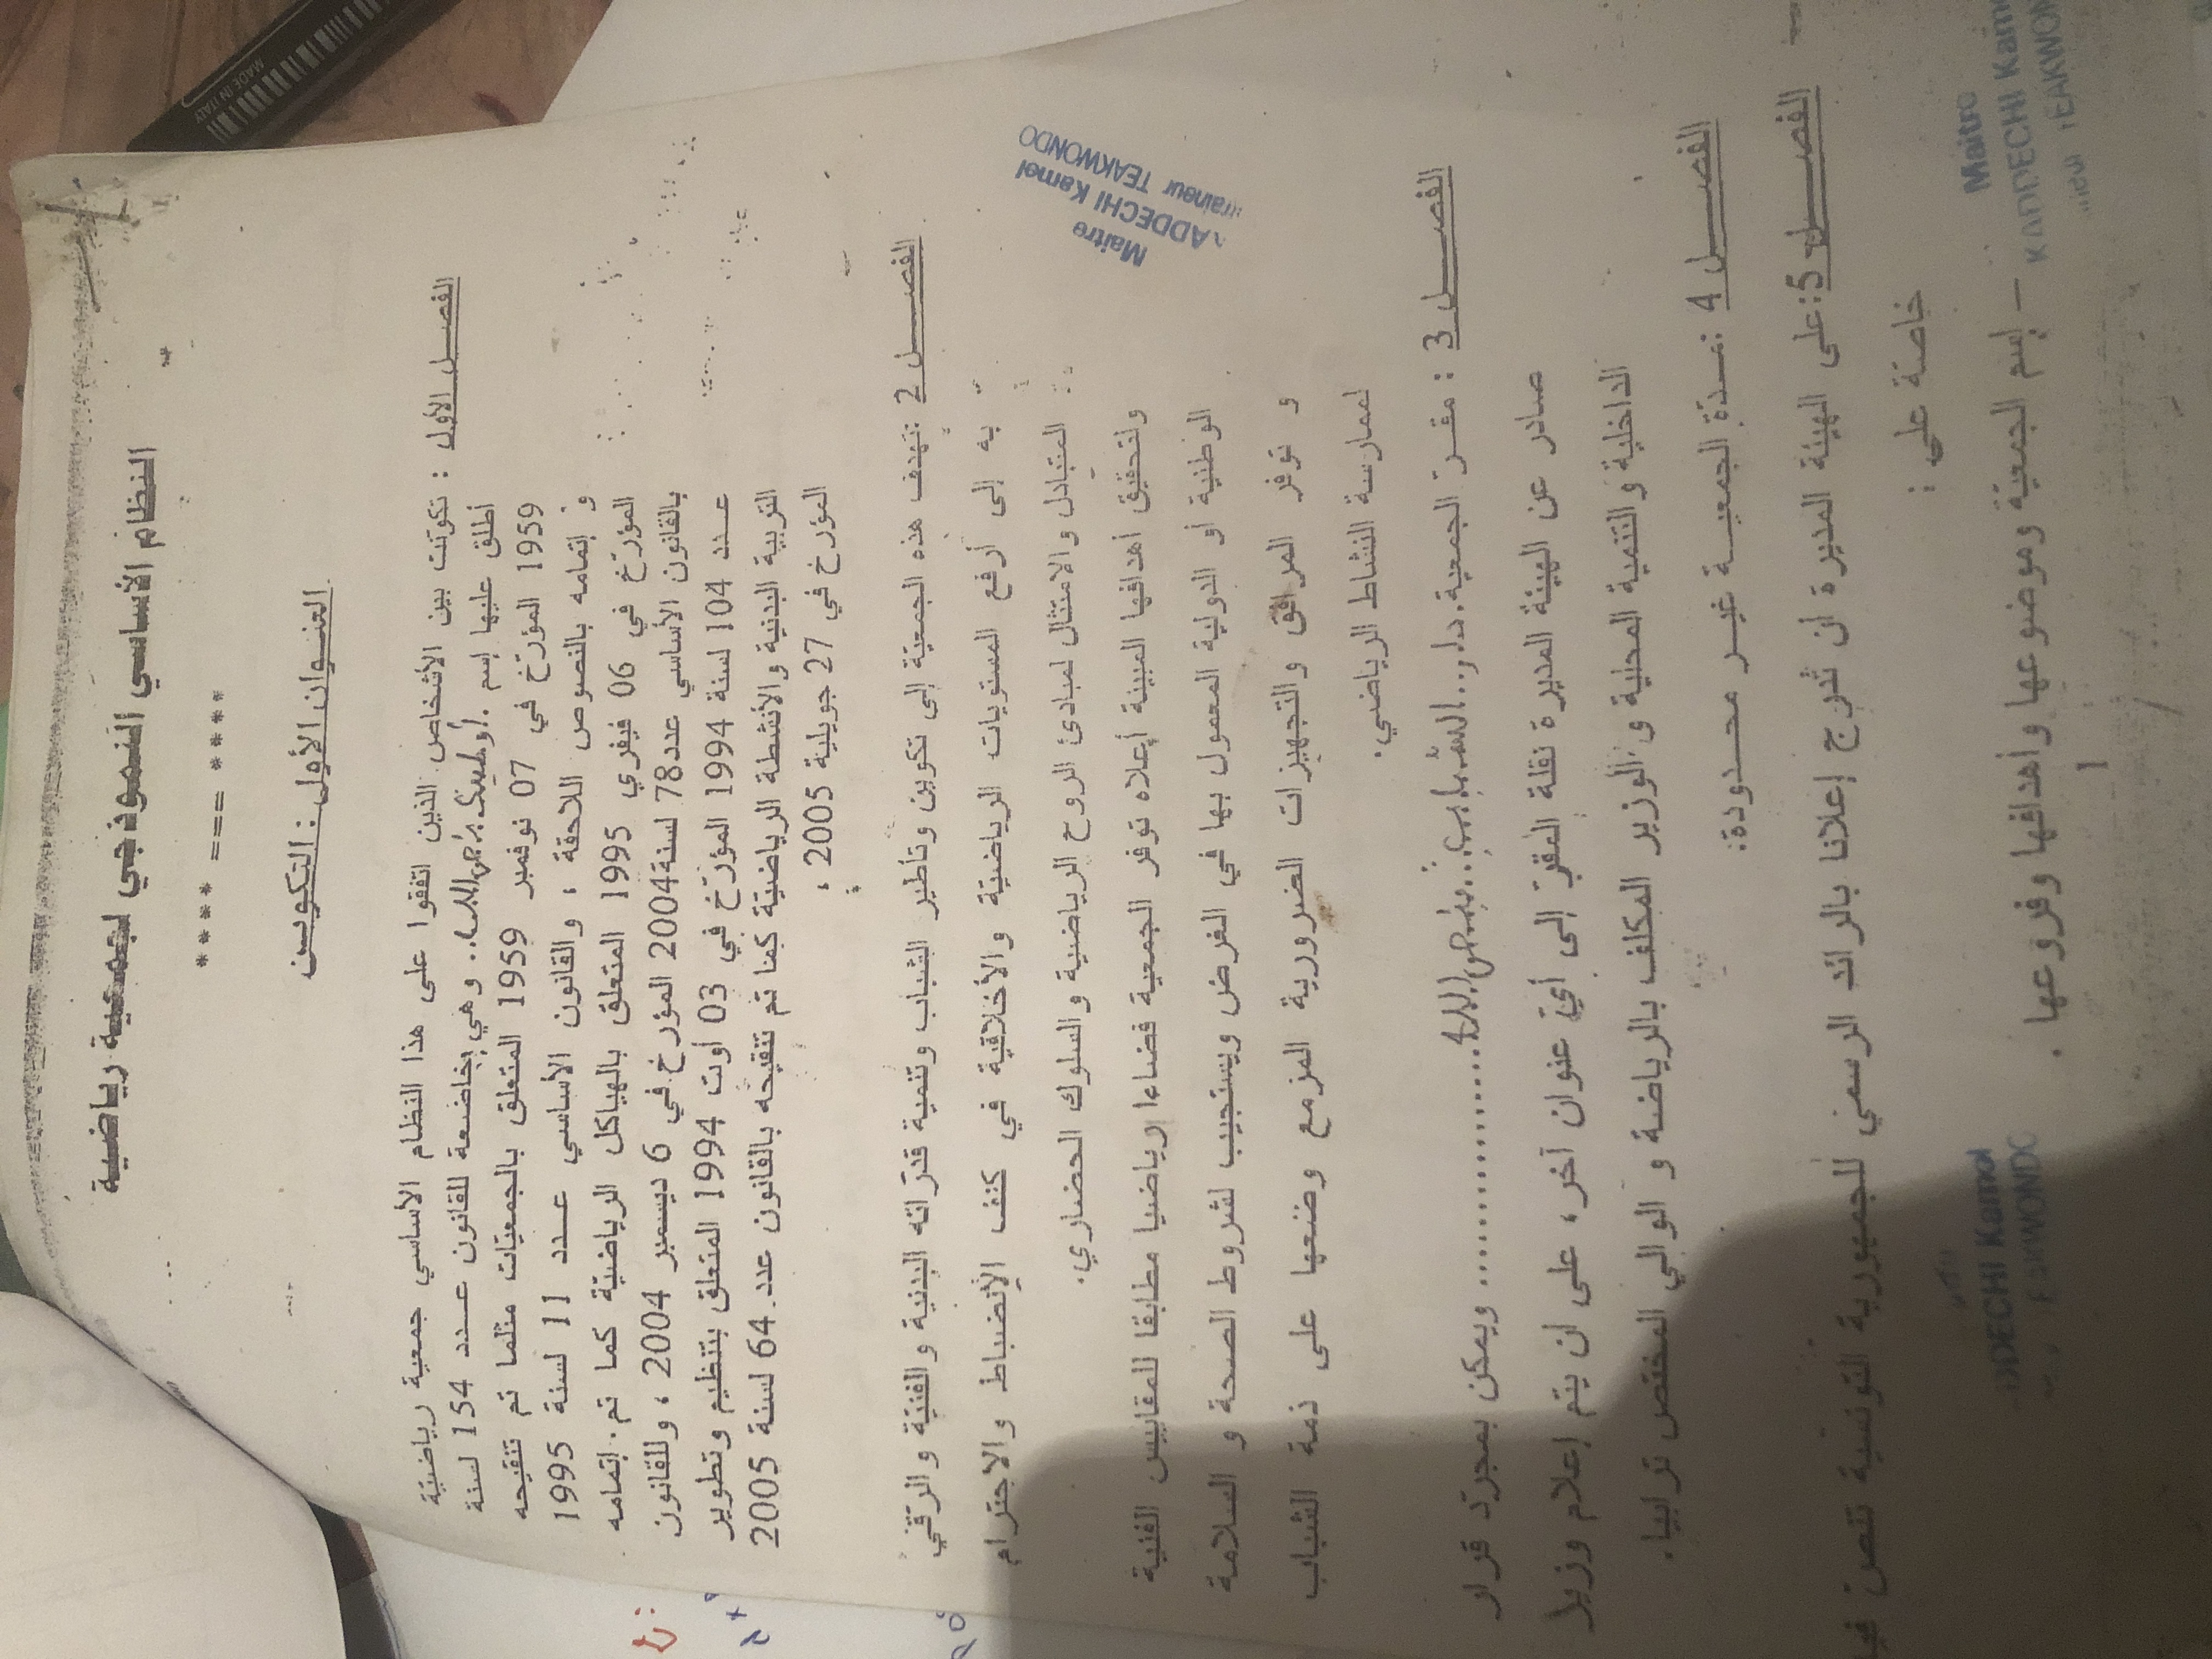 النظام الأساسي النموذجي لجمعية رياضية
**** === ****
العنوان الأول : التكوين
الفصل الأول : تكونت بين الأشخاص الذين اتفقوا على هذا النظام الأساسي جمعية رياضية
أطلق عليها إسم وهي خاضعة للقانون عدد 154 لسنة
1959 المؤرخ في 07 نوفمبر 1959 المتعلق بالجمعيات مثلما تم تنقيحه
و إتمامه بالنصوص اللاحقة ، والقانون الأساسي عدد 11 لسنة 1995
المؤرخ في 06 فيفري 1995 المتعلق بالهياكل الرياضية كما تم إتمامه
بالقانون الأساسي عدد 78 لسنة 2004 المؤرخ في 6 ديسمبر 2004 ، وللقانون
عدد 104 لسنة 1994 المؤرخ في 03 أوت 1994 المتعلق بتنظيم وتطوير
التربية البدنية والأنشطة الرياضية كما تم تنقيحه بالقانون عدد 64 لسنة 2005
المؤرخ في 27 جويلية 2005 ،
الفصل 2 : تهدف هذه الجمعية إلى تكوين وتأطير الشباب وتنمية قدراته البدنية والفنية والرقي
به إلى أرفع المستويات الرياضية والأخلاقية في كنف الإنضباط والاحترام
المتبادل والامتثال لمبادئ الروح الرياضية والسلوك الحضاري.
ولتحقيق أهدافها المبينة أعلاه توفر الجمعية فضاءا رياضيا مطابقا للمقاييس الفنية
الوطنية أو الدولية المعمول بها في الغرض ويستجيب لشروط الصحة و السلامة
و توفر المرافق والتجهيزات الضرورية المزمع وضعها على ذمة الشباب
لممارسة النشاط الرياضي.
الفصل 3 : مقر الجمعية دار الشباب ويمكن بمجرد قرار
صادر عن الهيئة المديرة نقلة المقر إلى أي عنوان آخر، على ان يتم إعلام وزير
الداخلية والتنمية المحلية و الوزير المكلف بالرياضة و الوالي المختص ترابيا.
الفصل 4 : مدة الجمعية غير محدودة:
الفصل 5 : على الهيئة المديرة ان تدرج إعلانا بالرائد الرسمي للجمهورية التونسية تنص فيه
خاصة على :
– إسم الجمعية وموضوعها وأهدافها وفروعها .
1
Maitre
KADDECHI Kamel
TEAKWONDO
Maitre
ADDECHI Kamel
raineur TEAKWONDO
DDECHI Kamel
MADE IN ITALY